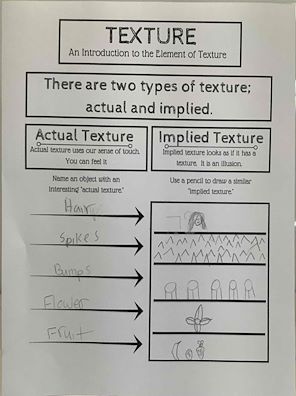 TEXTURE
An Introduction to the Element of Texture
There are two types of texture;
actual and implied.
Actual Texture
Actual texture uses our sense of touch.
You can feel it
Implied Texture
Implied texture looks as if it has a
texture. It is an illusion.
Name an object with an
interesting "actual texture."
Use a pencil to draw a similar
"implied texture."
Hairy
Spikes
Bumps
Flower
Fruit